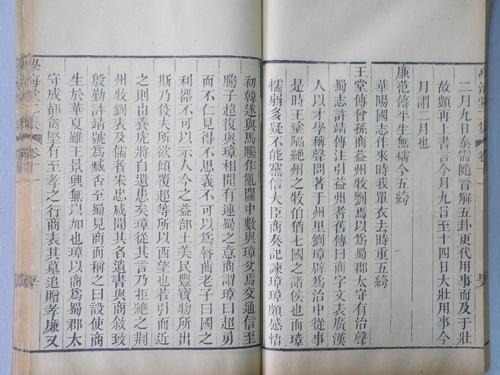 二月九日泰需隨晉解五卦更代用事而及于壯
故顗再上書言今月九日至十四日大壯用事今
月謂二月也
廉范傳平生無襦今五絝
華陽國志作來時我單衣去時重五絝
王堂傳曾孫商益州牧劉焉以為蜀郡太守有治聲
蜀志許靖傳注引益州耆舊傳曰商字文表廣漢
人以才學稱聲問著于州里劉璋辟為治中從事
是時王塗隔絕州之牧伯猶七國之諸侯也而璋
懦弱多疑不能黨信大臣商奏記諫璋璋頗感悟
初韓遂與馬騰作亂關中數與璋父焉交通信至
騰子超復與璋相聞有連蜀之意商謂璋曰超勇
而不仁見得不思義不可以為脣齒老子曰國之
利器不可以示人今之益部土美民豐寶物所出
斯乃狡夫所欲傾覆超等所以西望也若引而近
之則由養虎將自遺患矣璋從其言乃拒絕之荆
州牧劉表及儒者宋忠咸聞其名遺書與商敘致
殷勤許靖號為臧否至蜀見商而稱之曰設使商
生於華夏雖王景興無以加也璋以商為蜀郡太
守成都禽堅有至孝之行商表其墓追贈孝廉又
卷十一